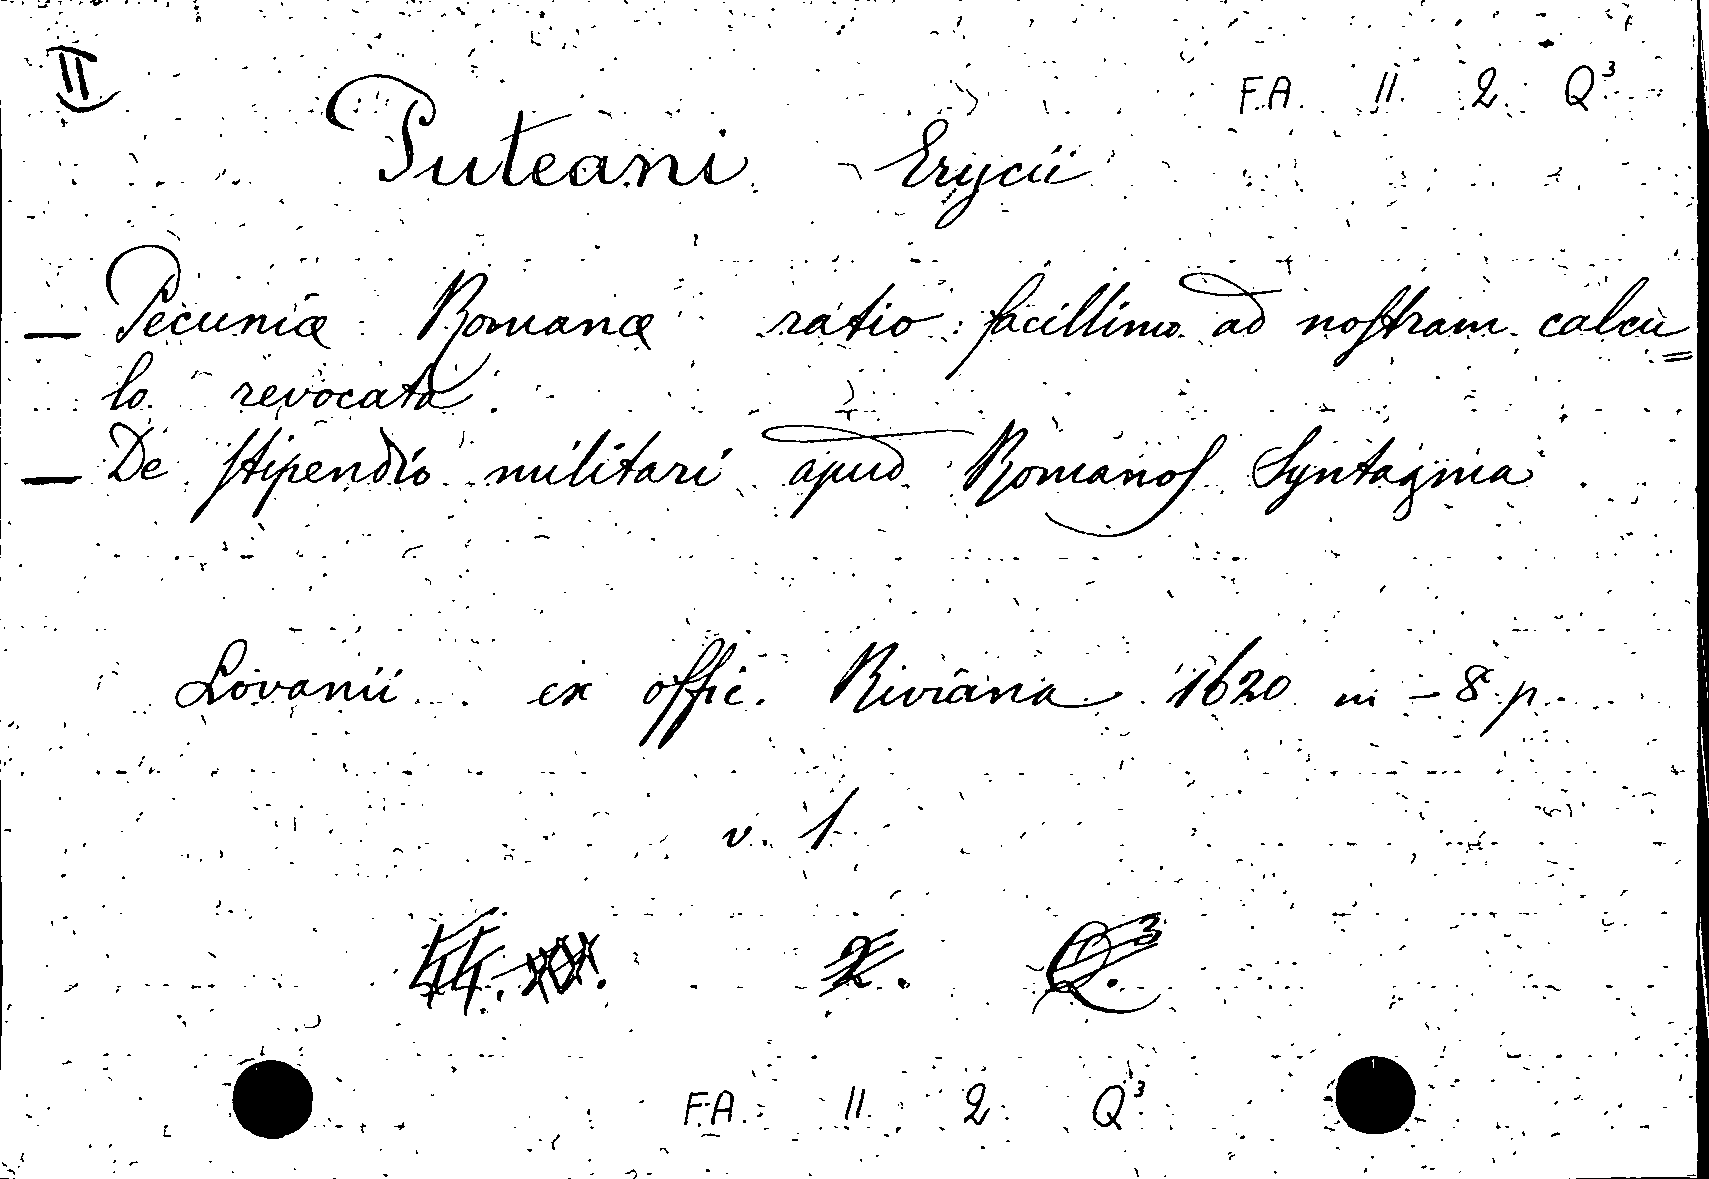 II
F.A. II. 2. Q³
Puteani Erycii
— Pecuniæ Romanæ ratio facillime ad noſtram calcu=
lo revocata
— De ſtipendio militari apud Romanoſ Syntagma
Lovanii ex offic. Riviana 1620 in - 8. p.
v. 1
2. Q.³
F.A. II. 2. Q³